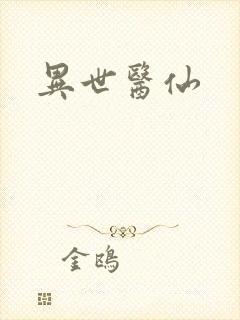 異世醫仙
金鴟